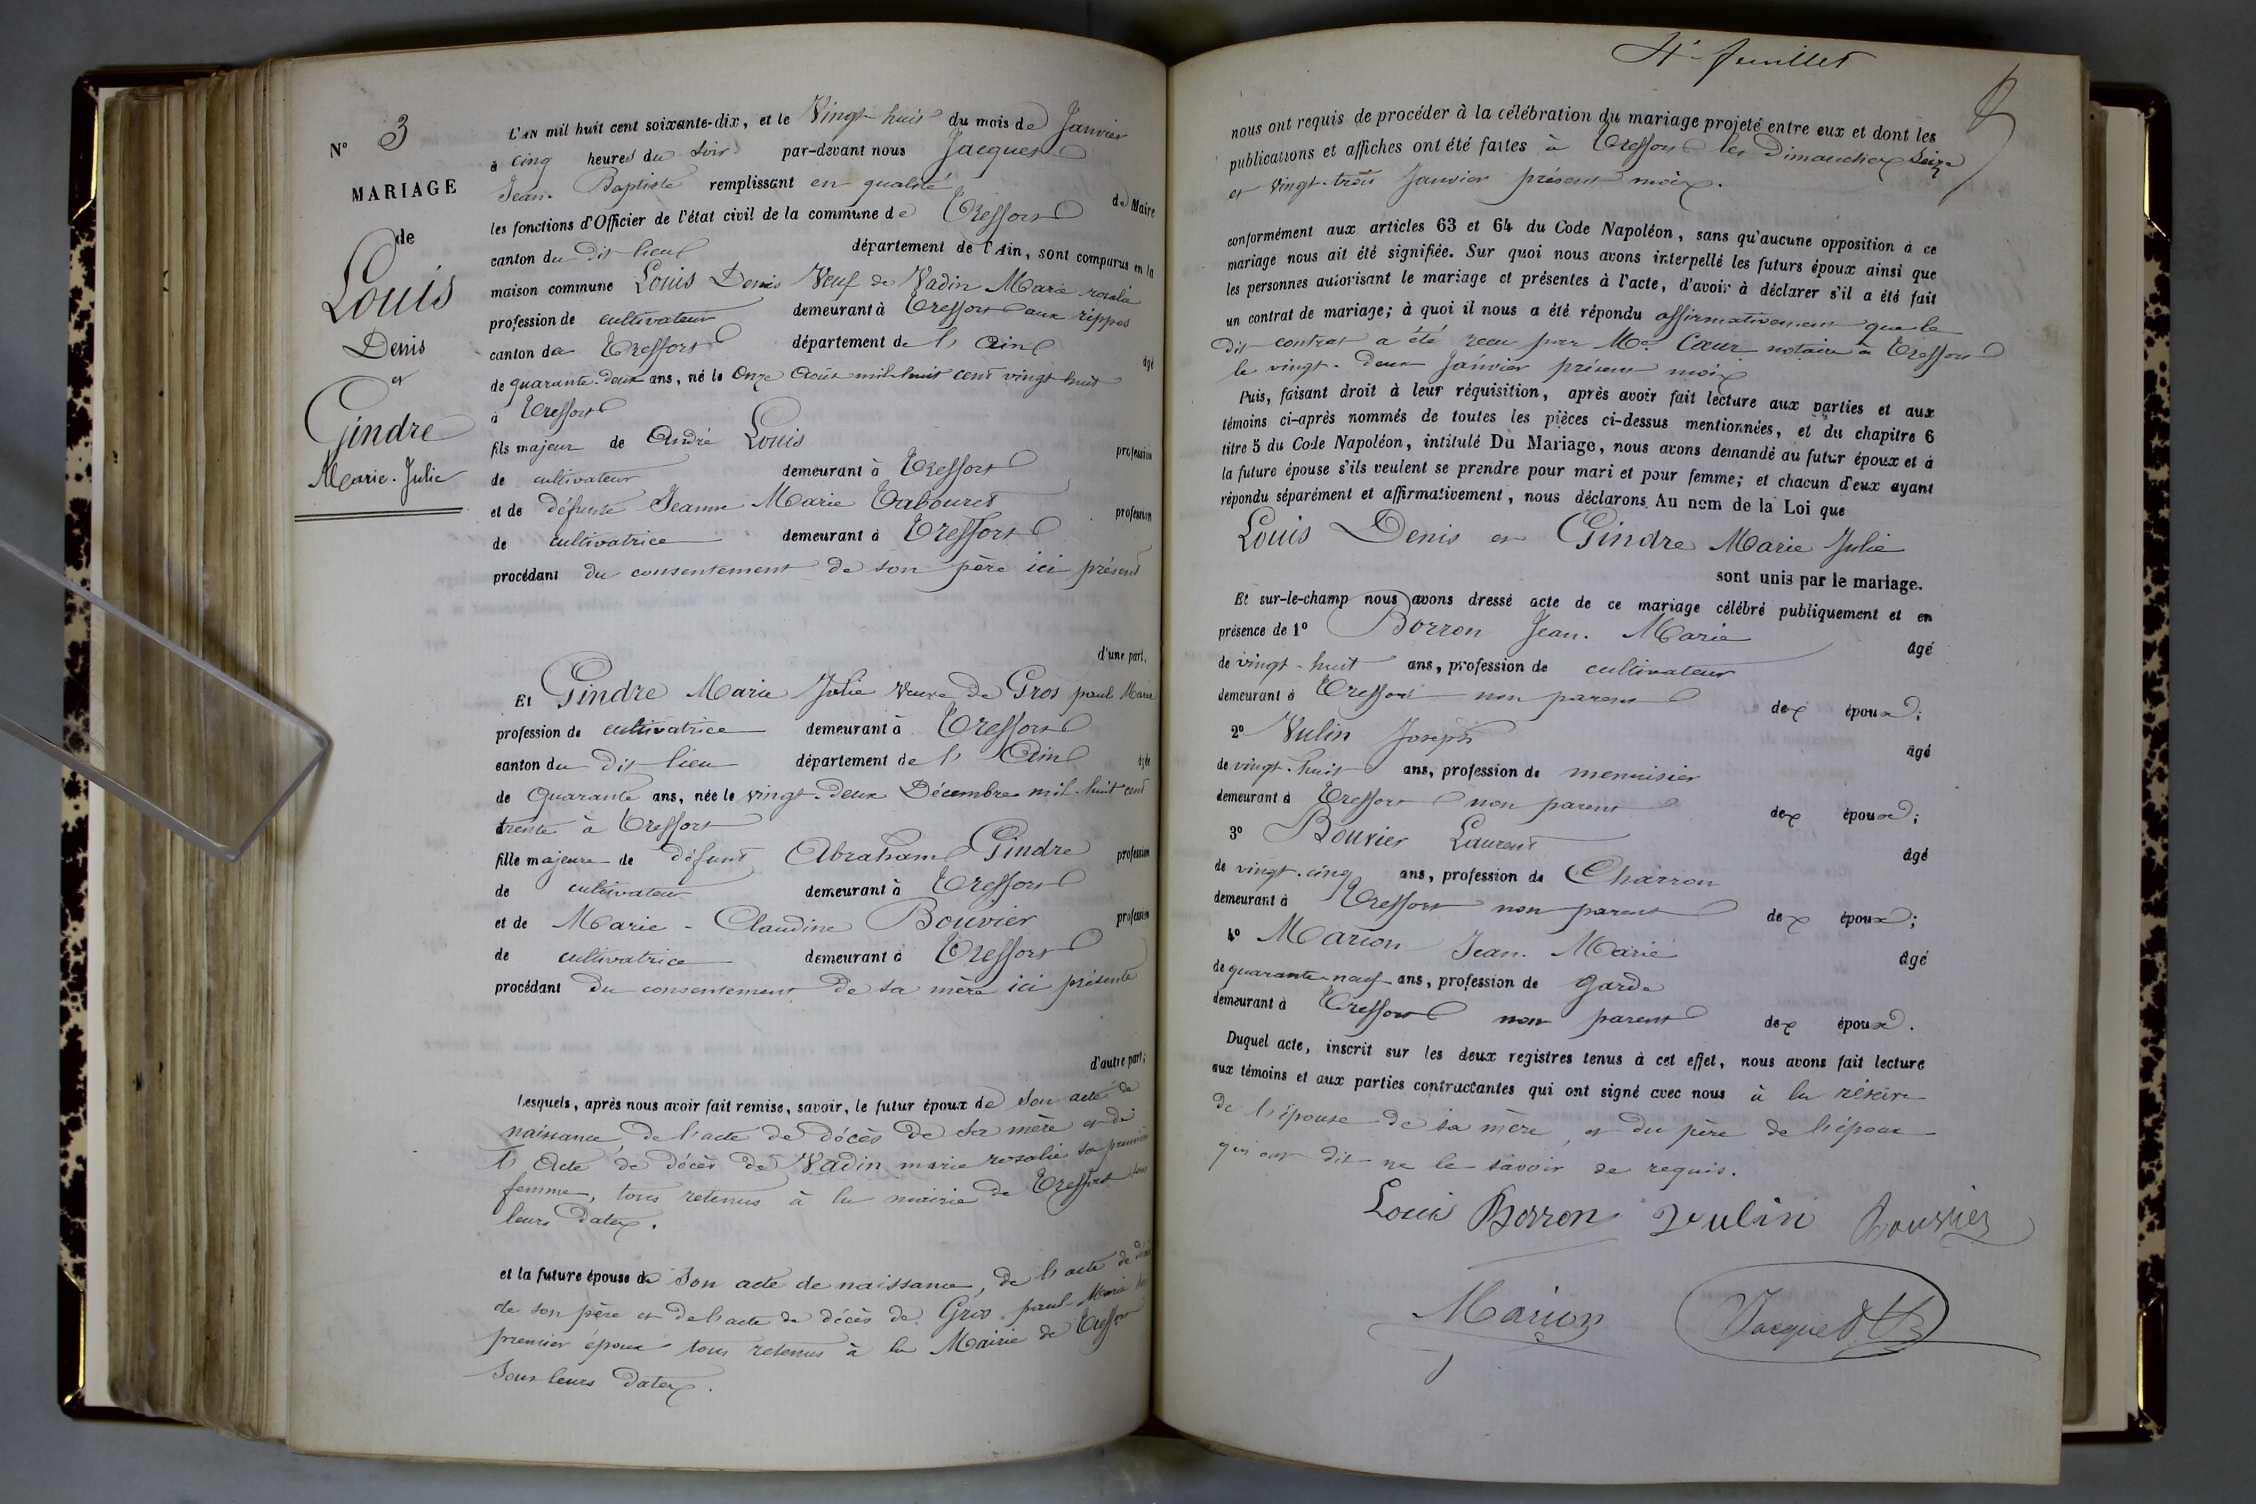 N° 3
MARIAGE
de
Louis
Denis
et
Gindre
Marie-Julie
L'AN mil huit cent soixante-dix, et le Vingt-huit du mois de Janvier
à cinq heures du soir par-devant nous Jacques
Jean-Baptiste remplissant en qualité de Maire
les fonctions d'Officier de l'état civil de la commune de Treffort
canton du dit lieu département de l'Ain, sont comparus en la
maison commune Louis Denis Veuf de Vadin Marie rosalie
profession de cultivateur demeurant à Treffort aux rippes
canton de Treffort département de l'Ain âgé
de quarante-deux ans, né le Onze Août mil-huit cent vingt huit
à Treffort
fils majeur de André Louis profession
de cultivateur demeurant à Treffort
et de défunte Jeanne Marie Tabouret profession
de cultivatrice demeurant à Treffort
procédant du consentement de son père ici présent
d'une part,
Et Gindre Marie Julie Veuve de Gros paul Marie
profession de cultivatrice demeurant à Treffort
canton du dit lieu département de l'Ain âgée
de Quarante ans, née le vingt-deux Décembre mil-huit cent
trente à Treffort
fille majeure de défunt Abraham Gindre profession
de cultivateur demeurant à Treffort
et de Marie-Claudine Bouvier profession
de cultivatrice demeurant à Treffort
procédant du consentement de sa mère ici présente
d'autre part;
Lesquels, après nous avoir fait remise, savoir, le futur époux de Son acte de
naissance, de l'acte de décès de sa mère et de
l'Acte de décès de Vadin marie rosalie sa première
femme, tous retenus à la mairie de Treffort sous
leurs dates.
et la future épouse de Son acte de naissance, de l'acte de décès
de son père et de l'acte de décès de Gros paul-Marie son
premier époux tous retenus à la Mairie de Treffort
Sous leurs dates.
4e feuillet
nous ont requis de procéder à la célébration du mariage projeté entre eux et dont les
publications et affiches ont été faites à Treffort les Dimanches Seize
et vingt-trois Janvier présent mois.
conformément aux articles 63 et 64 du Code Napoléon, sans qu'aucune opposition à ce
mariage nous ait été signifiée. Sur quoi nous avons interpellé les futurs époux ainsi que
les personnes autorisant le mariage et présentes à l'acte, d'avoir à déclarer s'il a été fait
un contrat de mariage; à quoi il nous a été répondu affirmativement que le
dit contrat a été recu par Me Cœur notaire à Treffort
le vingt-deux Janvier présent mois
Puis, faisant droit à leur réquisition, après avoir fait lecture aux parties et aux
témoins ci-après nommés de toutes les pièces ci-dessus mentionnées, et du chapitre 6
titre 5 du Code Napoléon, intitulé Du Mariage, nous avons demandé au futur époux et à
la future épouse s'ils veulent se prendre pour mari et pour femme; et chacun d'eux ayant
répondu séparément et affirmativement, nous déclarons Au nom de la Loi que
Louis Denis et Gindre Marie Julie
sont unis par le mariage.
Et sur-le-champ nous avons dressé acte de ce mariage célébré publiquement et en
présence de 1° Borron Jean-Marie âgé
de vingt-huit ans, profession de cultivateur
demeurant à Treffort non parent des époux;
2° Vulin Joseph âgé
de vingt-huit ans, profession de menuisier
demeurant à Treffort non parent des époux;
3° Bouvier Laurent âgé
de vingt-cinq ans, profession de Charron
demeurant à Treffort non parent des époux;
4° Marion Jean-Marie âgé
de quarante-neuf ans, profession de garde
demeurant à Treffort non parent des époux.
Duquel acte, inscrit sur les deux registres tenus à cet effet, nous avons fait lecture
aux témoins et aux parties contractantes qui ont signé avec nous à la réserve
de l'épouse de sa mère, et du père de l'époux
qui ont dit ne le savoir de requis.
Louis Borron Vulin Bouvier
Marion Jacques